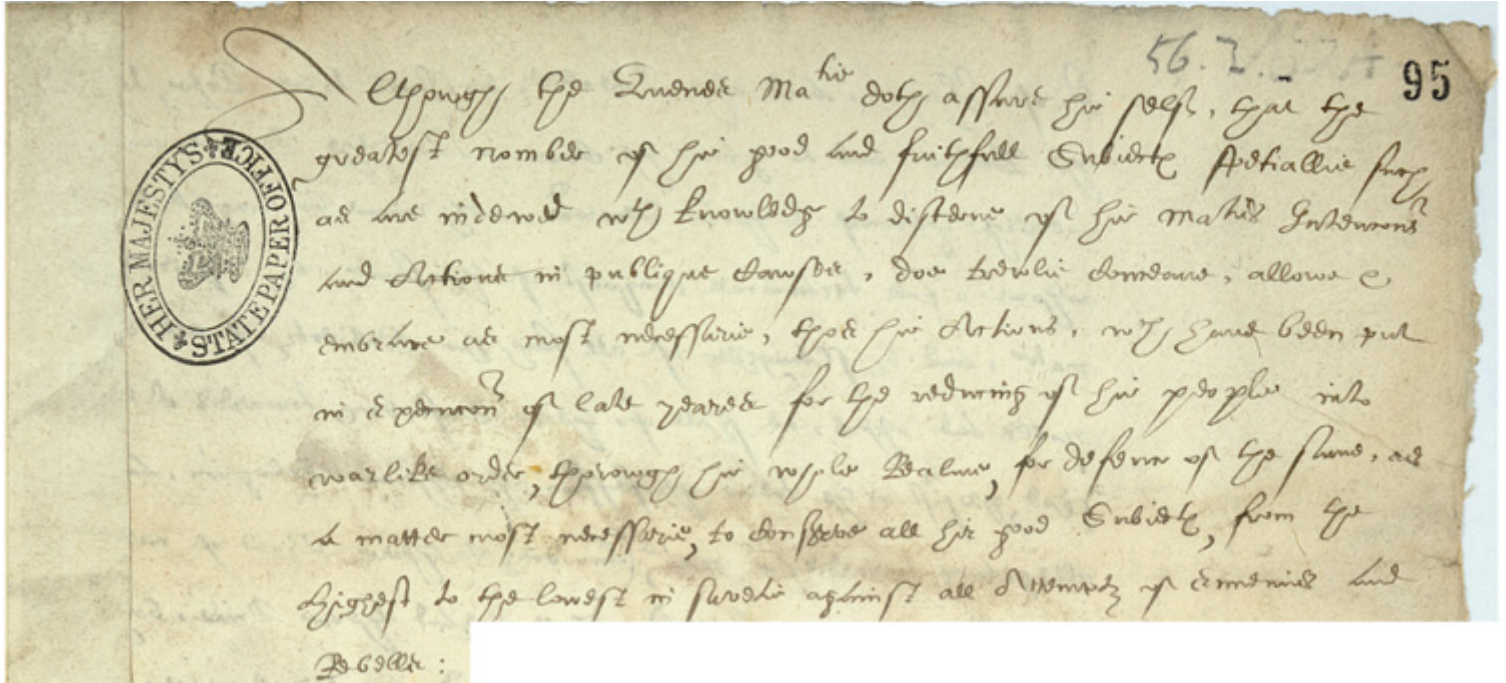 56.2.
95
HER MAJESTY'S STATE PAPER OFFICE
Althowgh the Quenes Matie doth assure hir self, that the
greatest nomber of hir good and faithfull Subiectes spetiallie such
as are indewed wth knowledg to discerne of hir Maties Intencions
and Actions in publique cawses, doe trewlie conceave, allowe &
embrace as most necessarie, thes hir Actions, wch have been put
in execucion of late yeares for the reducing of hir people into
warlike order, thorowgh hir whole Realme, for defence of the same, as
a matter most necessarie, to conserve all hir good Subiectes, from the
highest to the lowest in suretie against all Attemptes of Enemies and
Rebelles: